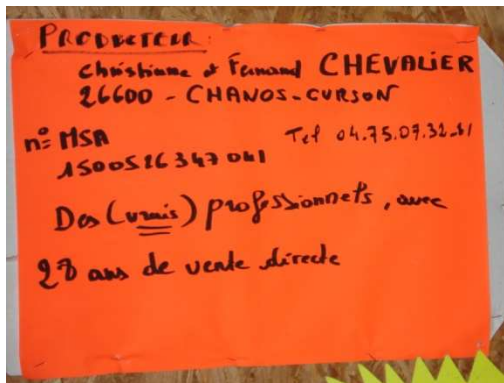 PRODUCTEUR :
Christiane et Fernand CHEVALIER
26600 - CHANOS-CURSON
n° MSA Tel 04.75.07.32.81
1500526347041
Des (vrais) professionnels, avec
28 ans de vente directe